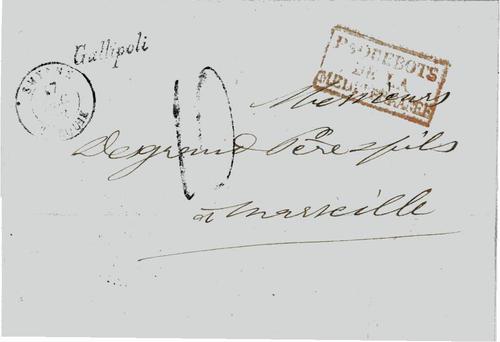 Gallipoli
SMYRNE
17
PAQUEBOTS
DE LA
MEDITERRANEE
Messieurs
Degrand Père & fils
10
à Marseille